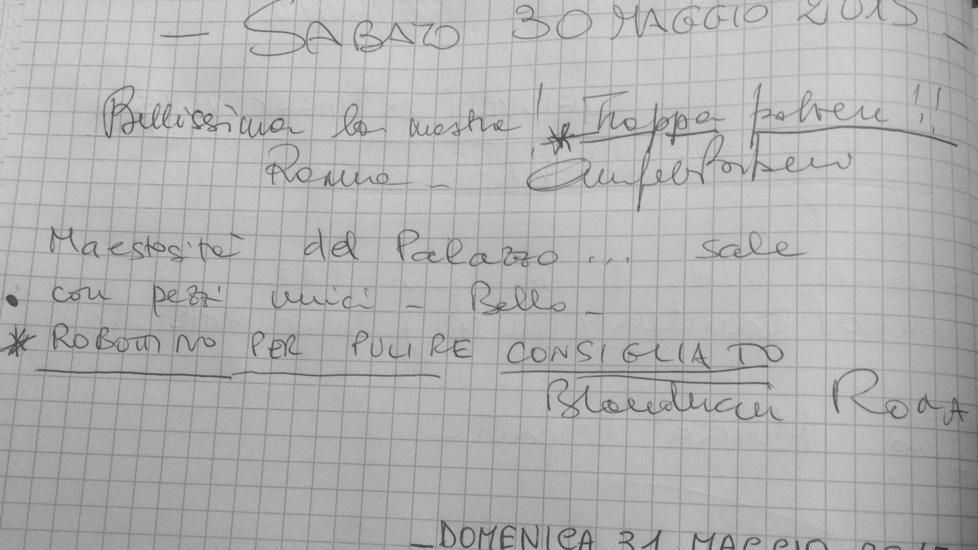 — SABATO 30 MAGGIO 2015 —
Bellissima la mostra! * Troppa polvere!!
Roma -
Maestosità del Palazzo... sale
• con pezzi unici - Bello -
* ROBOTTINO PER PULIRE CONSIGLIATO
— DOMENICA 31 MAGGIO 2015